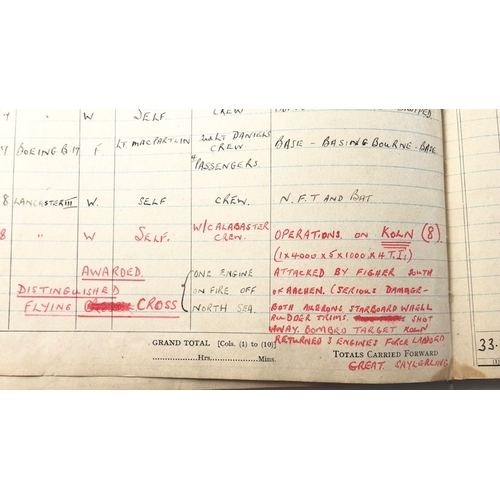 SELF CREW
BOEING B-17 F Lt. MACPARTLIN Lt DANIELS BASE - BASINGBOURNE - BASE
CREW
4 PASSENGERS.
8 LANCASTER III W. SELF CREW. N.F.T AND BAT
8 " W SELF. W/C ALABASTER OPERATIONS ON KOLN (8)
CREW. (1 X 4000 X 5 X 1000 X 4 T.I.)
AWARDED. ONE ENGINE ATTACKED BY FIGHER SOUTH
DISTINGUISHED ON FIRE OFF OF AACHEN. (SERIOUS DAMAGE-
FLYING CROSS NORTH SEA. BOTH AILERONS STARBOARD WHEEL
RUDDER TRIMS. SHOT
AWAY. BOMBED TARGET KOLN
GRAND TOTAL [Cols. (1) to (10)] RETURNED 3 ENGINES FORCE LANDED
............Hrs.............Mins. TOTALS CARRIED FORWARD 33.
GREAT SAYLERLING